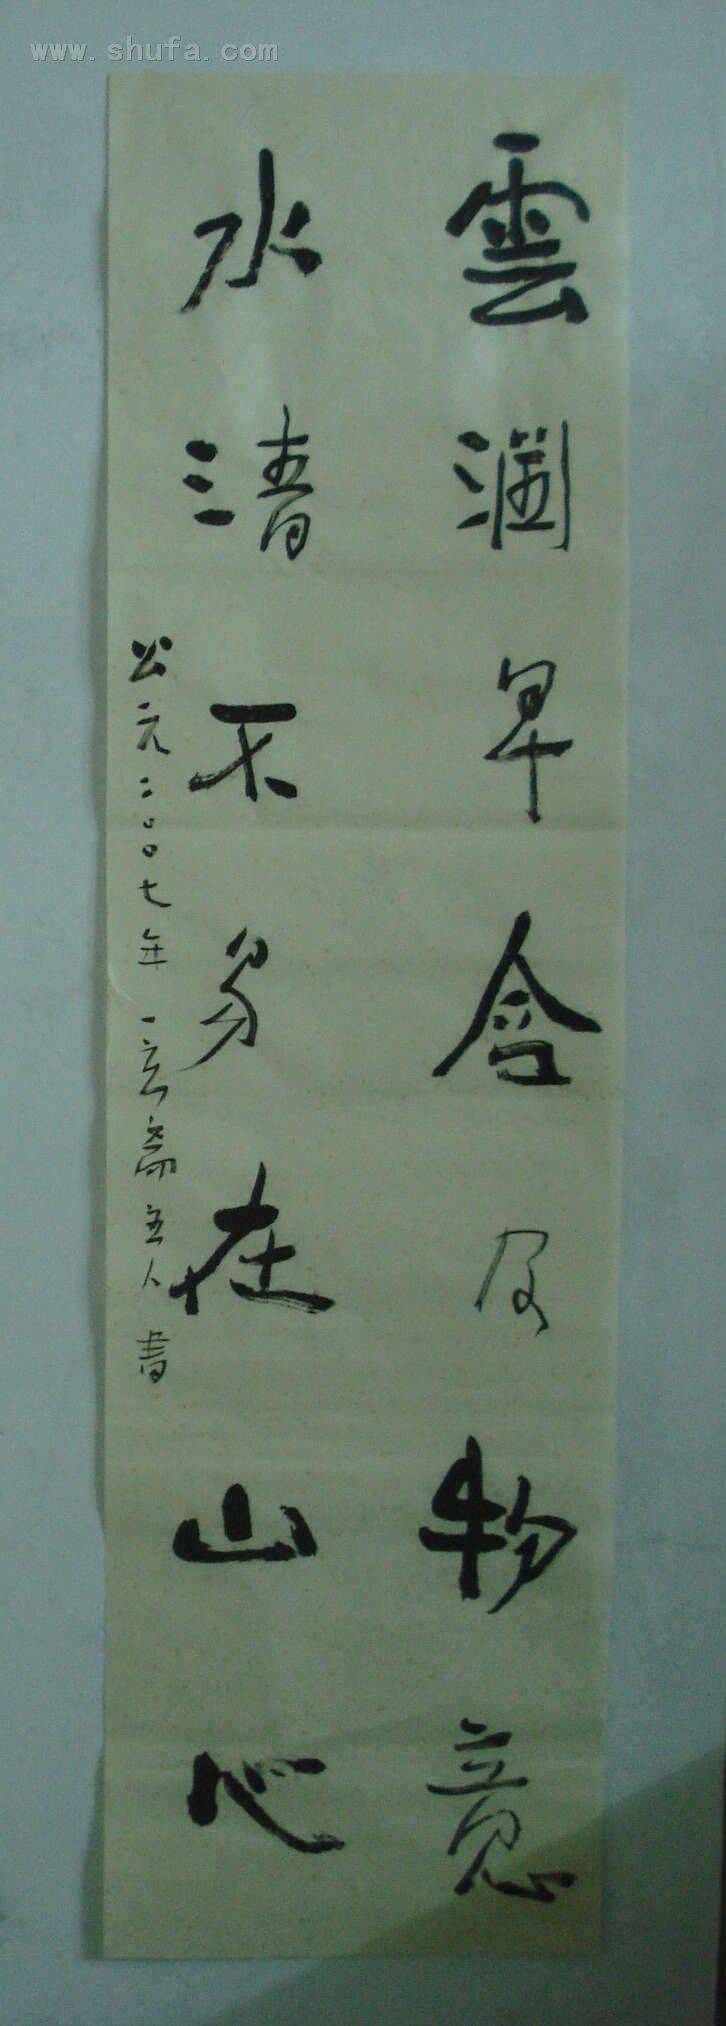 www.shufa.com
雲潤早含及物意
水清不易在山心
公元二〇〇七年 一齋主人書